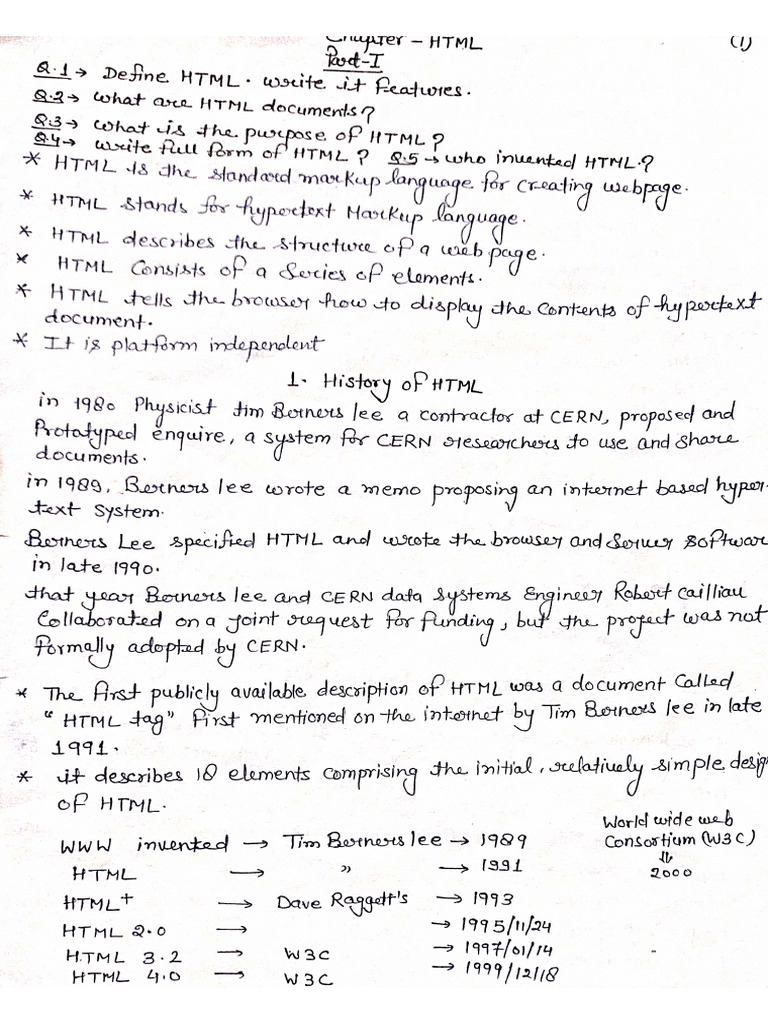 Chapter - HTML (1)
Part-I
Q.1 → Define HTML. write it features.
Q.2 → what are HTML documents?
Q.3 → what is the purpose of HTML?
Q.4 → write full form of HTML? Q.5 → who invented HTML.?
* HTML is the standard markup language for creating webpage.
* HTML stands for hypertext Markup language.
* HTML describes the structure of a web page.
* HTML consists of a series of elements.
* HTML tells the browser how to display the contents of hypertext
document.
* It is platform independent
1. History of HTML
in 1980 Physicist tim Berners lee a contractor at CERN, proposed and
Prototyped enquire, a system for CERN researchers to use and share
documents.
in 1989, Berners lee wrote a memo proposing an internet based hyper-
text system.
Berners Lee specified HTML and wrote the browser and server softwar
in late 1990.
that year Berners lee and CERN data systems Engineer Robert cailliau
Collaborated on a joint request for funding, but the project was not
formally adopted by CERN.
* The first publicly available description of HTML was a document called
"HTML tag" first mentioned on the internet by Tim Berners lee in late
1991.
* it describes 18 elements comprising the initial, relatively simple desig
of HTML.
WWW invented → Tim Berners lee → 1989
HTML → " → 1991
HTML+ → Dave Raggett's → 1993
HTML 2.0 → → 1995/11/24
HTML 3.2 → W3C → 1997/01/14
HTML 4.0 → W3C → 1999/12/18
World wide web
Consortium (W3C)
⇓
2000